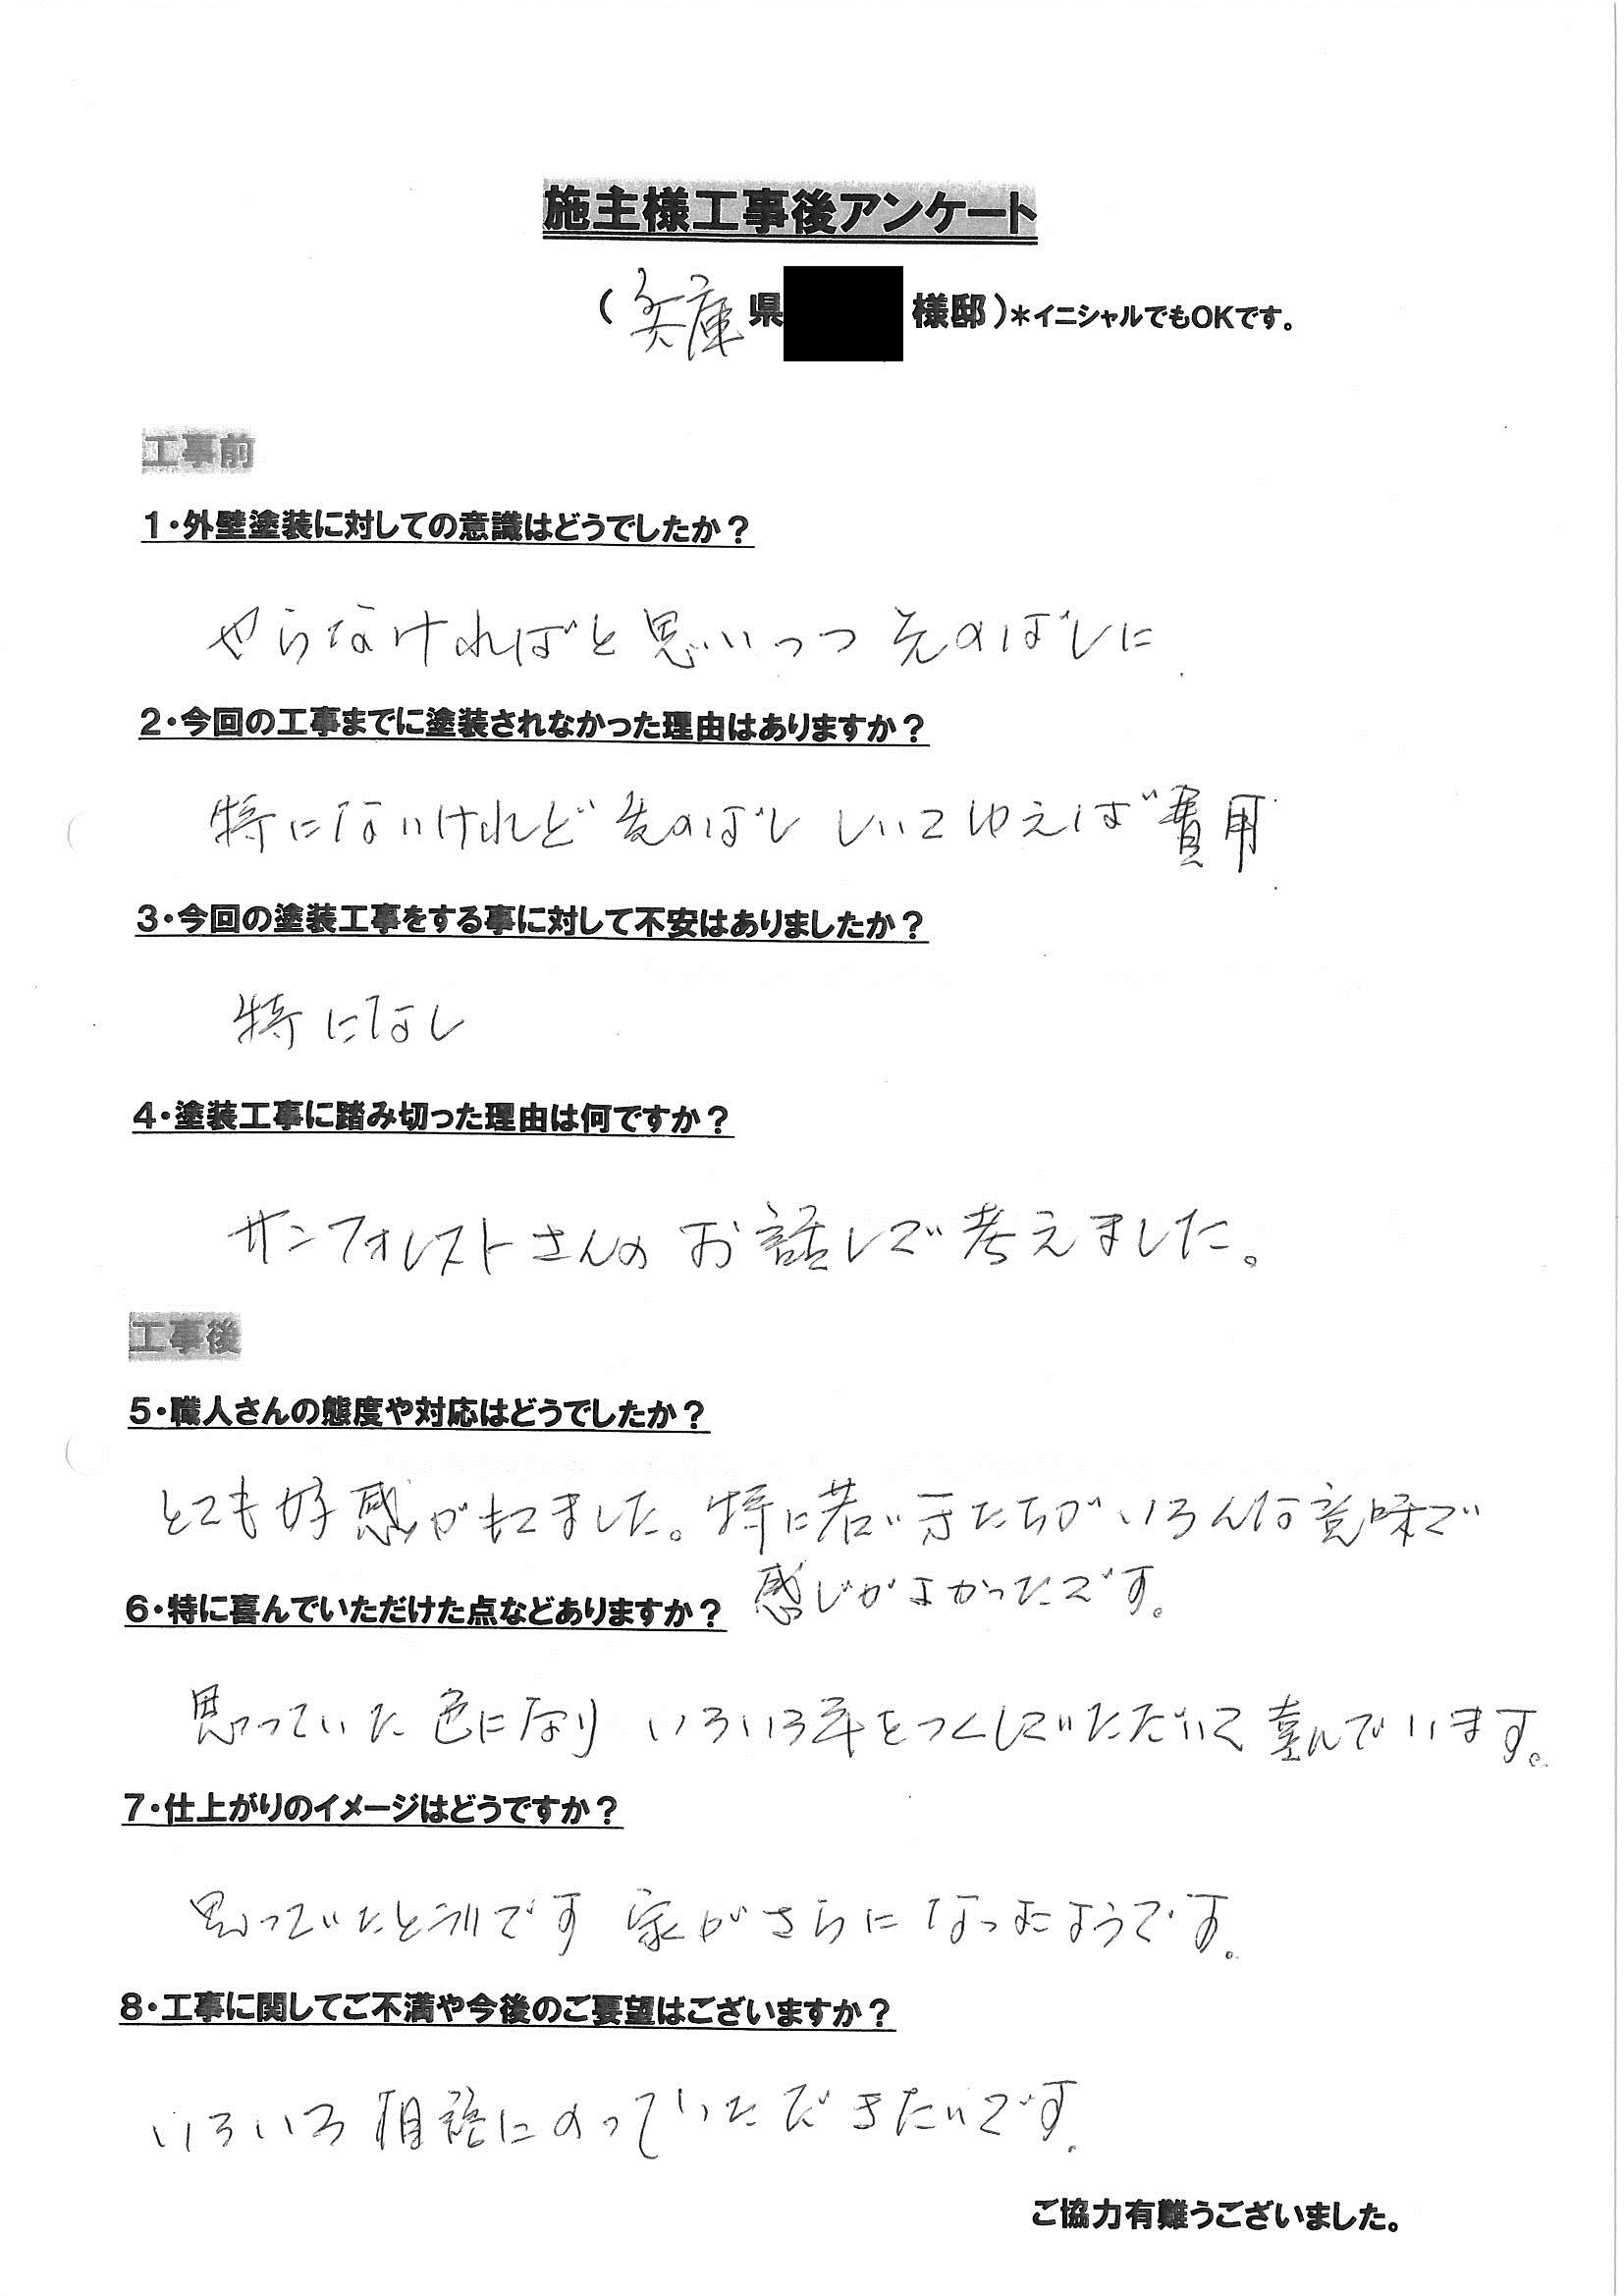 施主様工事後アンケート
(兵庫県 様邸)*イニシャルでもOKです。
工事前
1・外壁塗装に対しての意識はどうでしたか?
やらなければと思いつつ先のばしに
2・今回の工事までに塗装されなかった理由はありますか?
特にないけれど先のばし しいてゆえば費用
3・今回の塗装工事をする事に対して不安はありましたか?
特になし
4・塗装工事に踏み切った理由は何ですか?
サンフォレストさんのお話しで考えました。
工事後
5・職人さんの態度や対応はどうでしたか?
とても好感がもてました。特に若い方たちがいろんな意味で
感じがよかったです。
6・特に喜んでいただけた点などありますか?
思っていた色になり いろいろ手をつくしていただいて喜んでいます。
7・仕上がりのイメージはどうですか?
思っていたとうりです 家がさらになったようです。
8・工事に関してご不満や今後のご要望はございますか?
いろいろ相談にのっていただきたいです。
ご協力有難うございました。